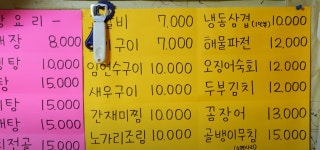 요리 -
8,000
탕 10,000
탕 15,000
탕 15,000
탕 15,000
전골 15,000
갈비 7,000
구이 7,000
임연수구이 10,000
새우구이 10,000
간재미찜 10,000
노가리조림 10,000
냉동삼겹(1인분) 10,000
해물파전 12,000
오징어숙회 12,000
두부김치 12,000
꼼장어 13,000
골뱅이무침 15,000